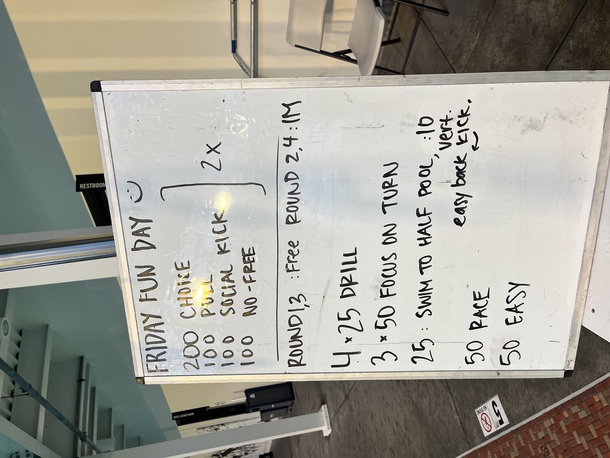 FRIDAY FUN DAY
200 CHOICE
100 PULL
100 SOCIAL KICK
100 NO-FREE
2x
ROUND 1,3 : Free ROUND 2,4 : IM
4 x 25 DRILL
3 x 50 FOCUS ON TURN
25 : SWIM TO HALF POOL, :10 vert. kick,
easy back
50 RACE
50 EASY
RESTROOM